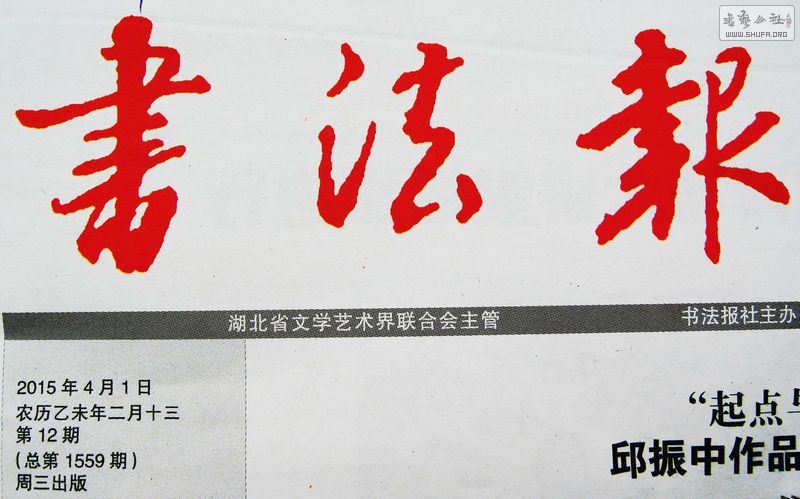 書法報
書藝公社
WWW.SHUFA.ORG
湖北省文学艺术界联合会主管
书法报社主办
2015年4月1日
农历乙未年二月十三
第12期
(总第1559期)
周三出版
“起点与
邱振中作品